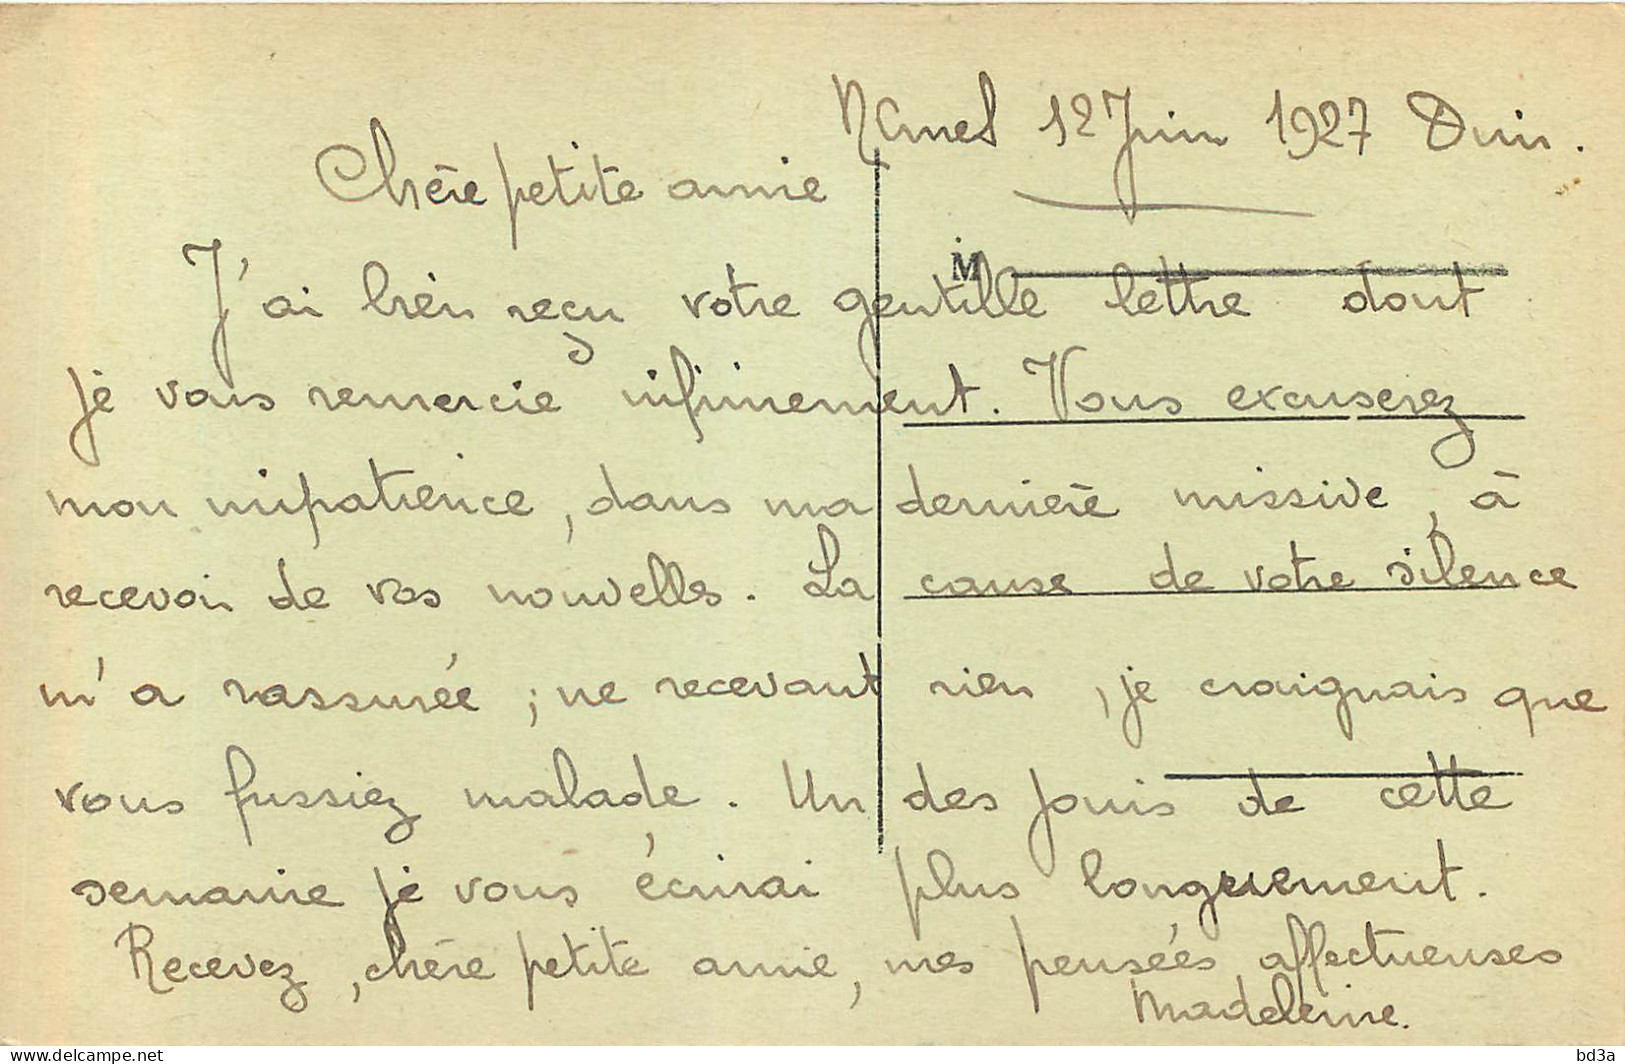 12 Juin 1927
Chère petite amie
M
J'ai bien reçu votre gentille lettre dont
je vous remercie infiniement. Vous excuserez
mon impatience, dans ma dernière missive, à
recevoir de vos nouvelles. La cause de votre silence
m'a rassurée ; ne recevant rien, je craignais que
vous fussiez malade. Un des jours de cette
semaine je vous écrirai plus longuement.
Recevez, chère petite amie, mes pensées affectueuses
Madeleine.
delcampe.net
bd3a